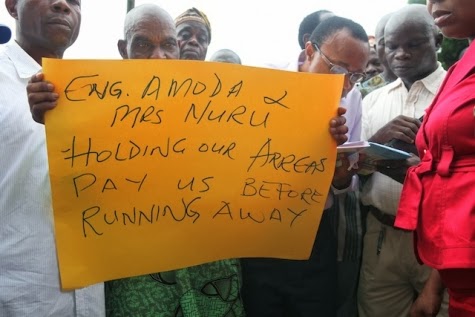 ENG. AMODA &
MRS NURU
HOLDING OUR ARREGAS
PAY US BEFORE
RUNNING AWAY